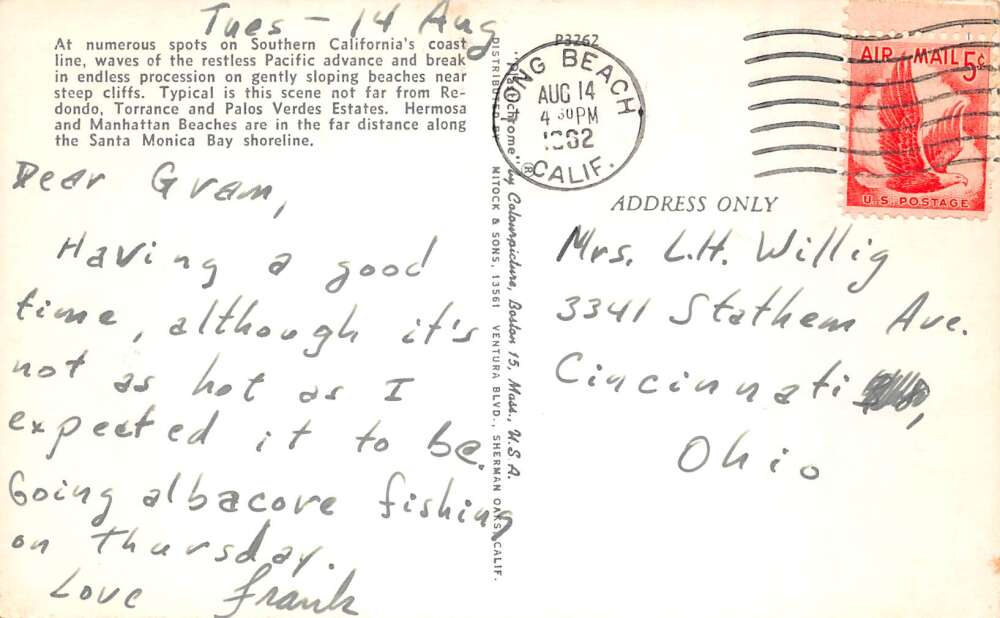 Tues - 14 Aug
At numerous spots on Southern California's coast
line, waves of the restless Pacific advance and break
in endless procession on gently sloping beaches near
steep cliffs. Typical is this scene not far from Re-
dondo, Torrance and Palos Verdes Estates. Hermosa
and Manhattan Beaches are in the far distance along
the Santa Monica Bay shoreline.
Dear Gram,
Having a good
time, although it's
not as hot as I
expected it to be.
Going albacore fishing
on Thursday.
Love Frank
DISTRIBUTED BY MITOCK & SONS, 13561 VENTURA BLVD., SHERMAN OAKS, CALIF.
"Plastichrome" ® by Colourpicture, Boston 15, Mass., U.S.A.
P3262
LONG BEACH
AUG 14
4 30 PM
1962
CALIF.
AIR MAIL 5¢
U.S. POSTAGE
ADDRESS ONLY
Mrs. L.H. Willig
3341 Stathem Ave.
Cincinnati,
Ohio